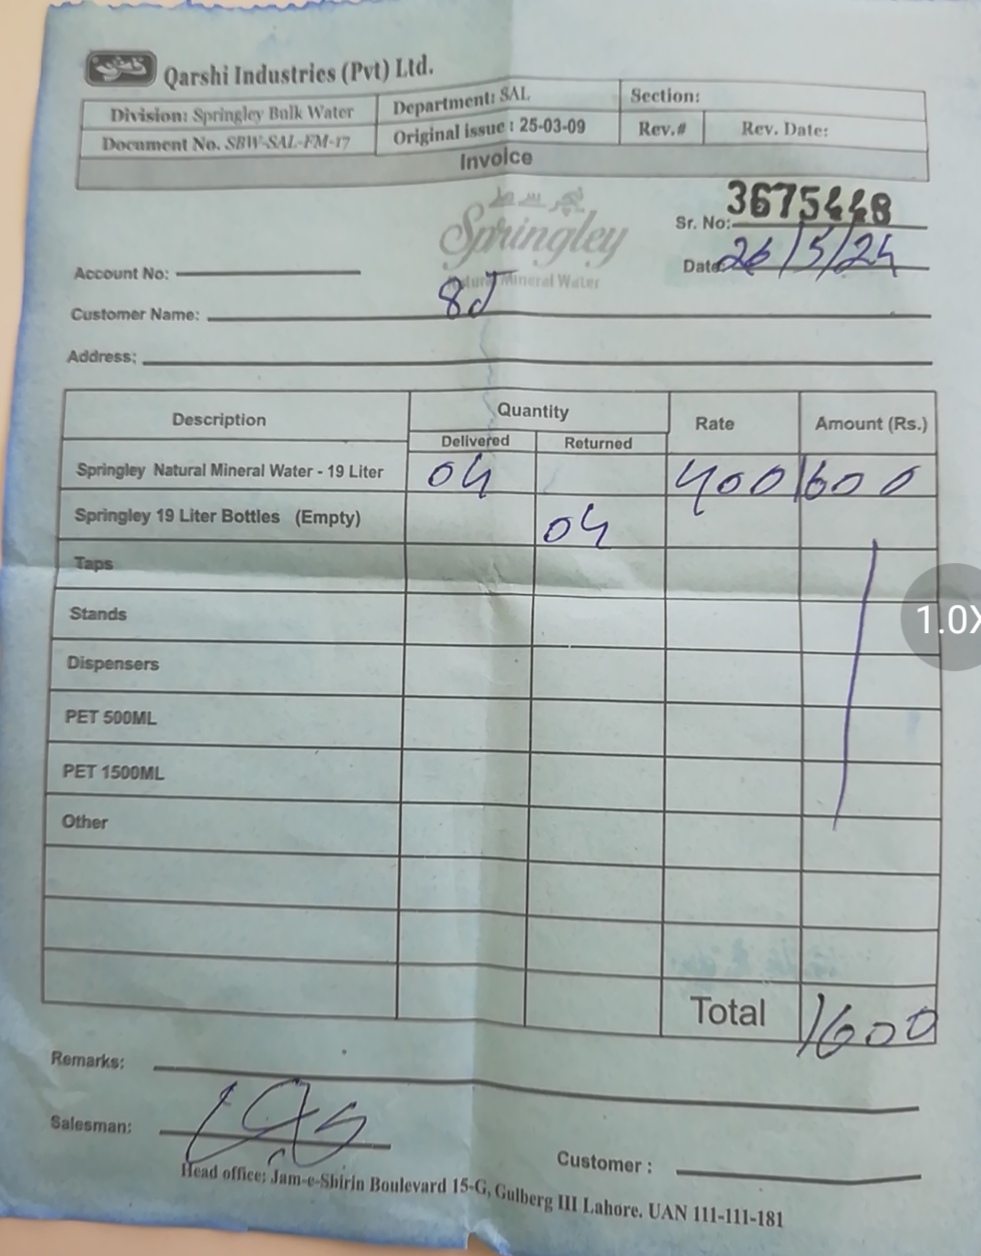 قرشی
Qarshi Industries (Pvt) Ltd.
Division: Springley Bulk Water Department: SAL Section:
Document No. SBW-SAL-FM-17 Original issue : 25-03-09 Rev.# Rev. Date:
Invoice
Springley
Natural Mineral Water
Sr. No: 3675448
Date 26/5/24
Account No:
Customer Name: 8J
Address:
Description Quantity Rate Amount (Rs.)
Delivered Returned
Springley Natural Mineral Water - 19 Liter 04 400 1600
Springley 19 Liter Bottles (Empty) 04
Taps
Stands
Dispensers
PET 500ML
PET 1500ML
Other
Total 1600
Remarks:
Salesman:
Customer :
Head office: Jam-e-Shirin Boulevard 15-G, Gulberg III Lahore. UAN 111-111-181
1.0X